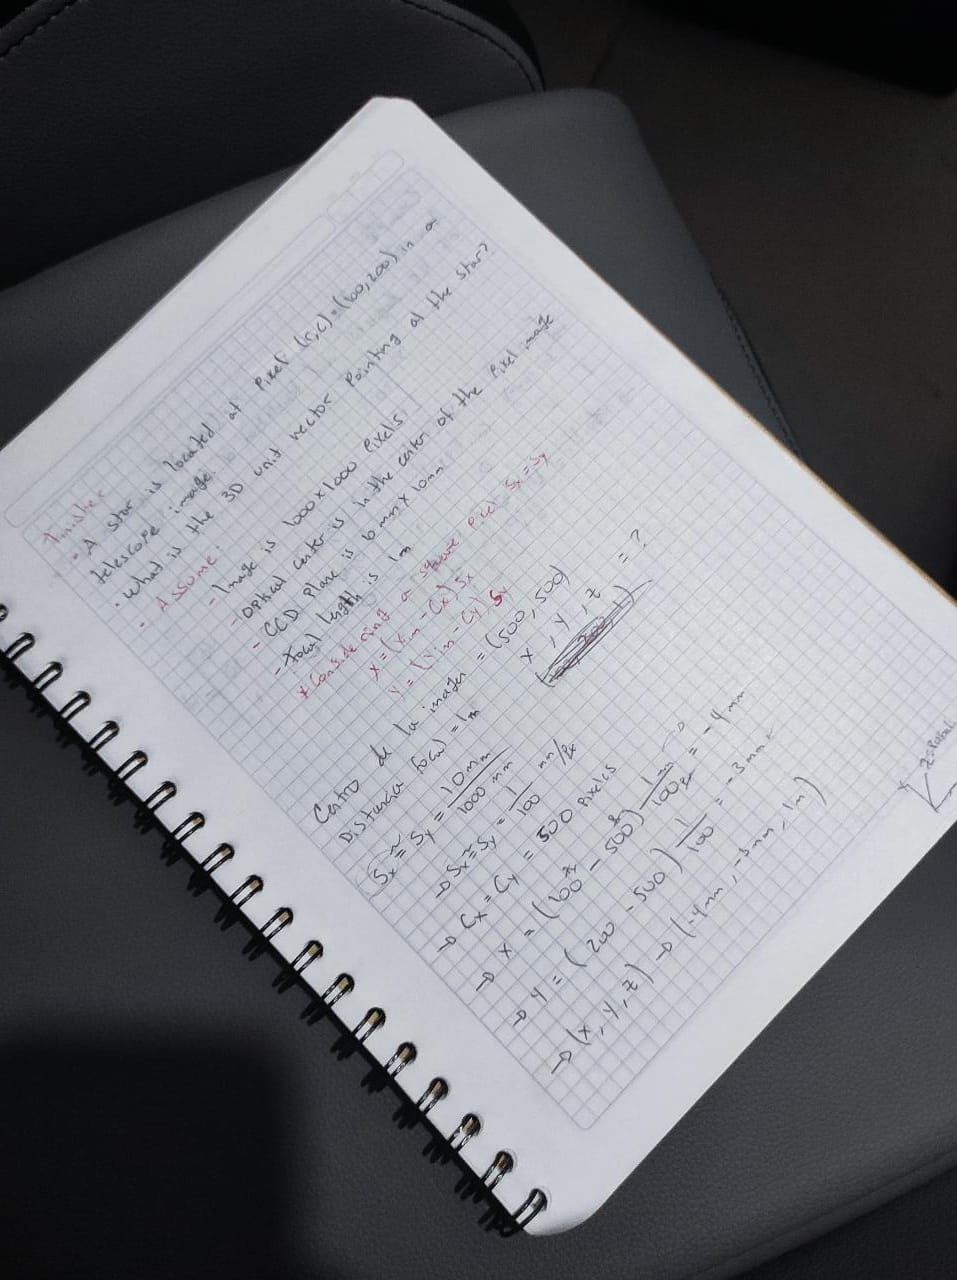 - A star is located at Pixel (r,c)=(100,200) in a
telescope image.
· What is the 3D unit vector Pointing at the star?
· Assume:
- Image is 1000 x 1000 Pixels
- Optical center is in the center of the Pixel image
- CCD Plane is 10 mm x 10 mm
- Focal length is 1m
* Considering a square Pixel Sx = Sy
x = (xim - Cx) Sx
y = (yim - Cy) Sy
Centro de la imagen = (500, 500)
Distancia focal = 1m
x, y, z = ?
Sx ≅ Sy = 10mm / 1000 mm
→ Sx ≅ Sy = 1/100 mm/Px
→ Cx = Cy = 500 Pixeles
→ x = (100 - 500) 1mm/100 = -4 mm
→ y = (200 - 500) 1/100 = -3mm
→ (x, y, z) → (-4mm, -3mm, 1m)